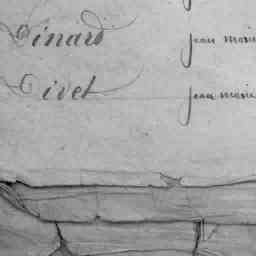 Binard jean marie
Civet jean marie